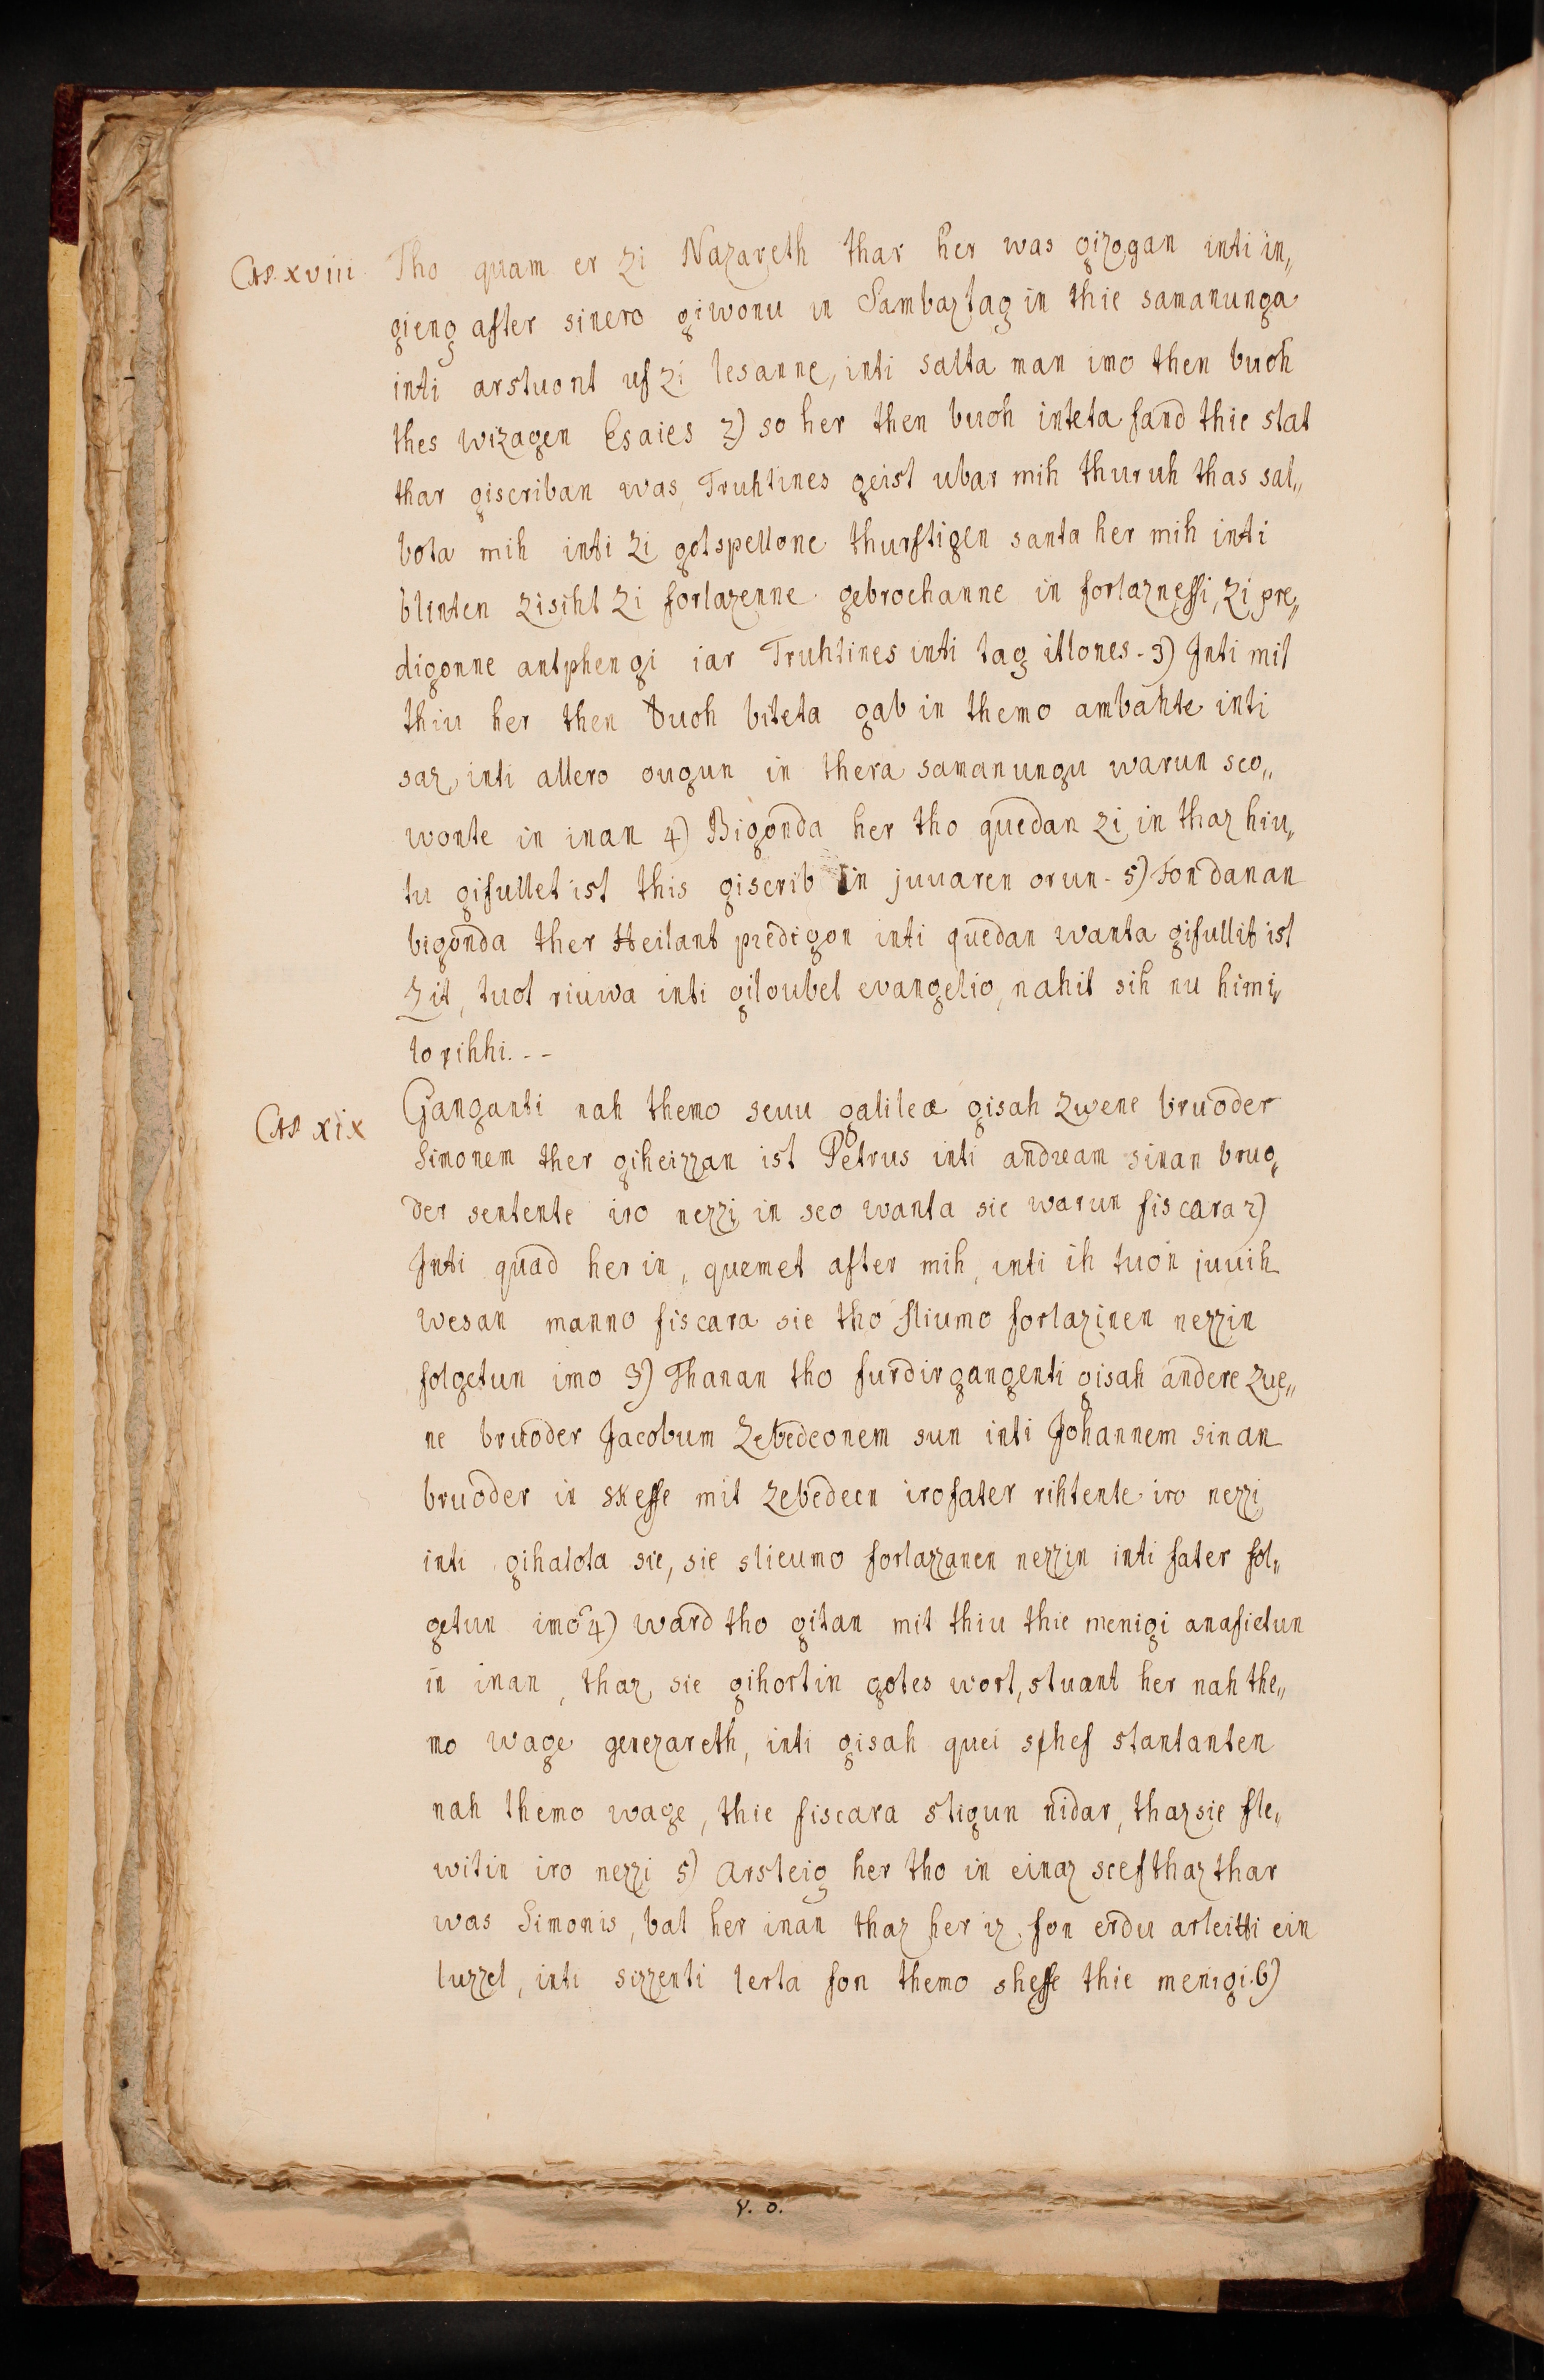 Cap. xviii Tho quam er zi Nazareth thar her was gizogan inti in„
gieng after sinero giwonu in Sambaztag in thie samanunga
inti arstuont uf zi lesanne, inti salta man imo then buoh
thes wizagen Esaies 2) so her then buoh inteta fand thie stat
thar giscriban was, Truhtines geist ubar mih thuruh thas sal„
bota mih inti zi gotspellone thurftigen santa her mih inti
blinten zisiht zi forlazenne gebrochanne in forlaznessi, zi pre„
digonne antphengi iar Truhtines inti tag itlones. 3) Inti mit
thiu her then buoh biteta gab in themo ambahte inti
saz, inti allero ougun in thera samanungu warun sco„
wonte in inan 4) Bigonda her tho quedan zi in thaz hiu„
tu gifullet ist this giscrib in juuaren orun. 5) Fon danan
bigonda ther Heilant predigon inti quedan wanta gifullit ist
zit, tuot riuwa inti giloubet evangelio, nahit sih nu himi„
lo rihhi. - -
Cap xix Ganganti nah themo seuu galileæ gisah zwene bruoder
Simonem ther giheizzan ist Petrus inti andream sinan bruo„
der sentente iro nezzi in seo wanta sie warun fiscara 2)
Inti quad her in, quemet after mih, inti ih tuon juuih
wesan manno fiscara sie tho sliumo forlazinen nezzin
folgetun imo 3) Thanan tho furdir gangenti gisah andere zue„
ne bruoder Jacobum Zebedeonem sun inti Johannem sinan
bruoder in skeffe mit zebedeen iro fater rihtente iro nezzi
inti gihalota sie, sie slieumo forlazzanen nezzin inti fater fol„
getun imo 4) ward tho gitan mit thiu thie menigi anafieltun
in inan, thaz sie gihortin gotes wort, stuant her nah the„
mo wage genezareth, inti gisah quei sphef stantanten
nah themo wage, thie fiscara stigun nidar, thaz sie fle„
witin iro nezzi 5) arsteig her tho in einaz scef thaz thar
was Simonis, bat her inan thaz her iz fon erdu arleitti ein
luzzel, inti sizzenti lerta fon themo sheffe thie menigi. 6)
v. o.